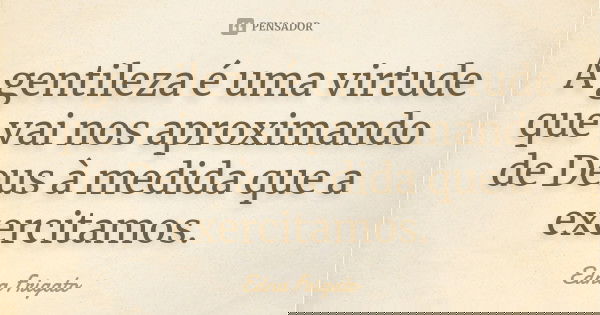 PENSADOR
A gentileza é uma virtude
que vai nos aproximando
de Deus à medida que a
exercitamos.
Edna Frigato